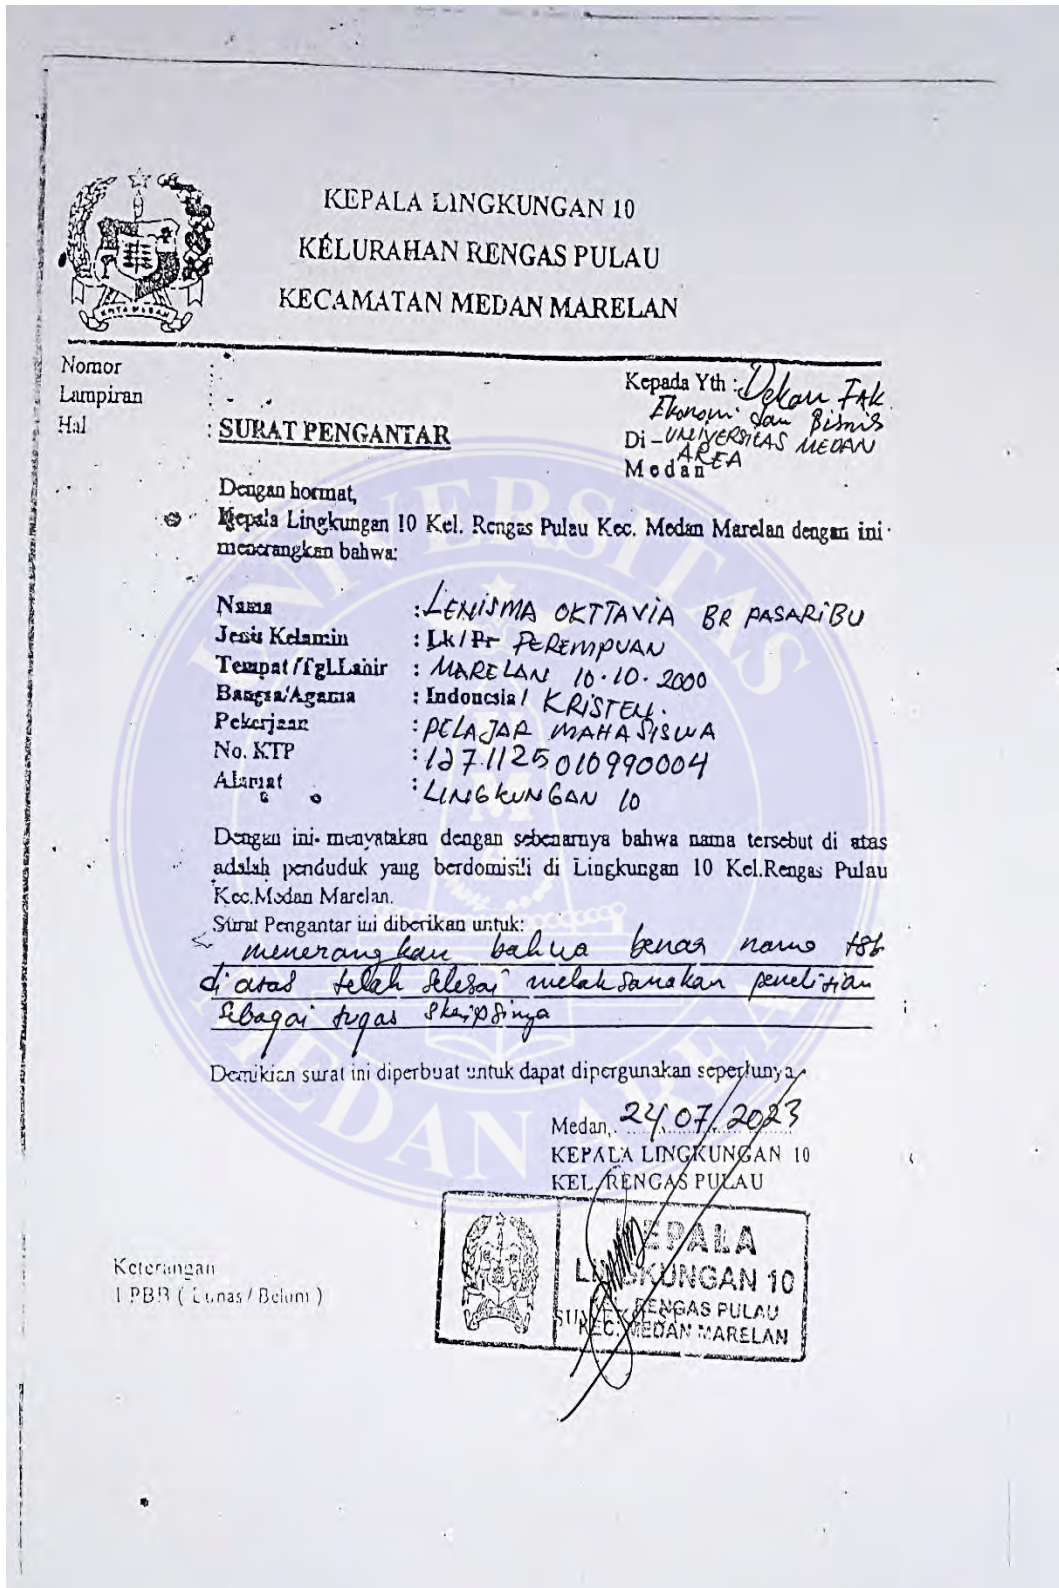 KEPALA LINGKUNGAN 10
KELURAHAN RENGAS PULAU
KECAMATAN MEDAN MARELAN
KOTA MEDAN
Nomor :
Lampiran : -
Hal : SURAT PENGANTAR
Kepada Yth : Dekan FAK
Ekonomi dan Bisnis
Di - UNIVERSITAS MEDAN
AREA
Medan
Dengan hormat,
Kepala Lingkungan 10 Kel. Rengas Pulau Kec. Medan Marelan dengan ini
menerangkan bahwa:
Nama : LENISMA OKTTAVIA BR PASARIBU
Jenis Kelamin : Lk / Pr PEREMPUAN
Tempat /Tgl.Lahir : MARELAN 10.10.2000
Bangsa/Agama : Indonesia / KRISTEN.
Pekerjaan : PELAJAR MAHASISWA
No. KTP : 1271125010990004
Alamat : LINGKUNGAN 10
Dengan ini menyatakan dengan sebenarnya bahwa nama tersebut di atas
adalah penduduk yang berdomisili di Lingkungan 10 Kel.Rengas Pulau
Kec.Medan Marelan.
Surat Pengantar ini diberikan untuk:
menerangkan bahwa benar nama tsb
di atas telah selesai melaksanakan penelitian
sebagai tugas skripsinya
Demikian surat ini diperbuat untuk dapat dipergunakan seperlunya.
Medan, 24/07/2023
KEPALA LINGKUNGAN 10
KEL. RENGAS PULAU
KEPALA
LINGKUNGAN 10
KEL. RENGAS PULAU
KEC. MEDAN MARELAN
Keterangan
1 PBB ( Lunas / Belum )
UNIVERSITAS
MEDAN AREA